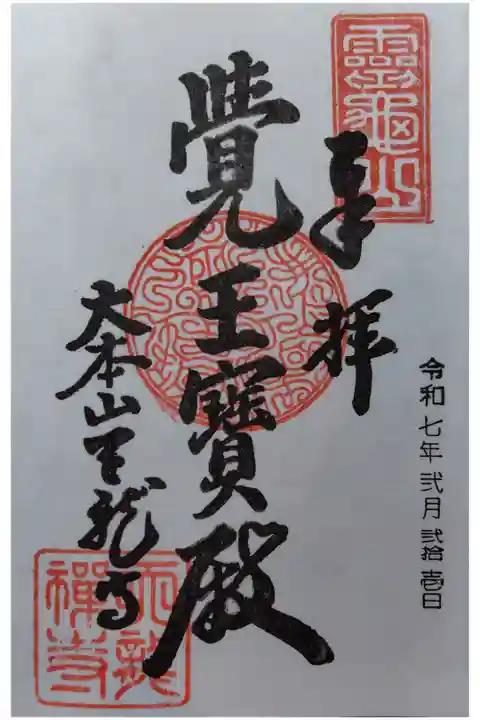 靈龜山
奉拝
令和七年弐月弐拾壱日
覺王寶殿
大本山天龍寺
天龍禪寺